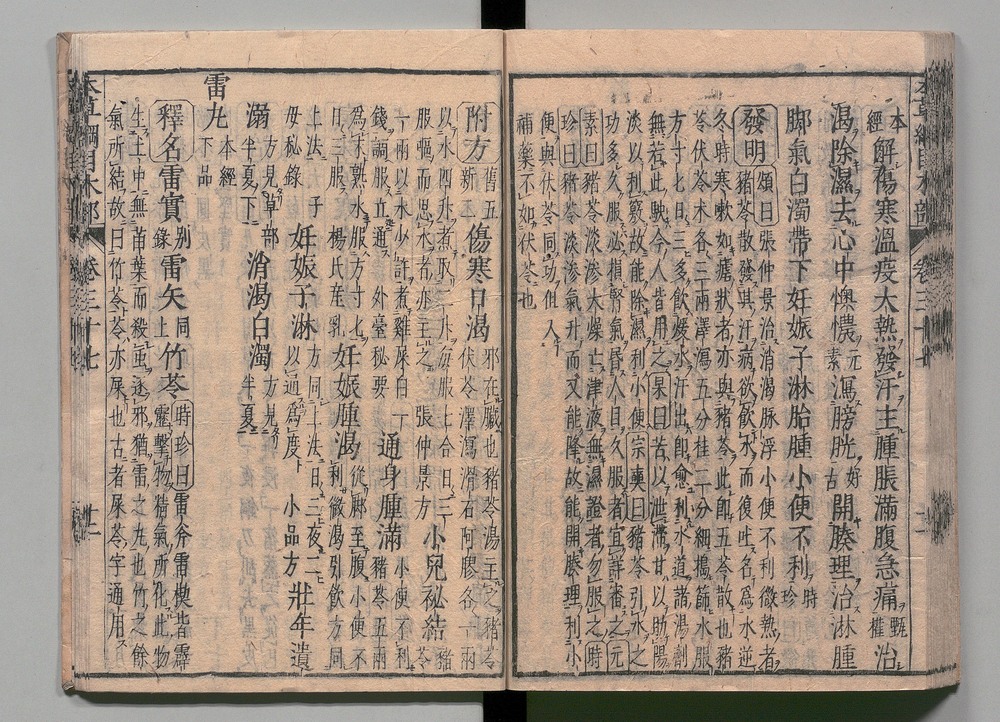 本經解傷寒溫疫大熱發汗主腫脹滿腹急痛甄權治
渴除濕去心中懊憹元素瀉膀胱好古開腠理治淋腫
脚氣白濁帶下妊娠子淋胎腫小便不利時珍
發明頌曰張仲景治消渴脉浮小便不利微熱者
猪苓散發其汗病欲飲水而復吐名爲水逆
冬時寒嗽如瘧狀者亦與豬苓散此即五苓散也豬
苓伏苓术各三兩澤瀉五分桂二分細搗篩水服
方寸匕日三多飲煖水汗出即愈利水道諸湯劑
無若此駛今人皆用之杲曰苦以泄滯甘以助陽
淡以利竅故能除濕利小便宗奭曰豬苓引水之
功多久服必損腎氣昏人目久服者宜詳審之元
素曰豬苓淡滲大燥亡津液無濕證者勿服之時
珍曰豬苓淡滲氣升而又能降故能開腠理利小
便與伏苓同功但入
補藥不如伏苓也
附方舊五新二傷寒口渴邪在臟也豬苓湯主之豬苓
伏苓澤瀉滑石阿膠各一兩
以水四升煮取二升每服七合日三嘔
服嘔而思水者亦主之張仲景方小兒祕結豬苓
一兩以水少許煮雞屎白一
錢調服立通外臺秘要通身腫滿小便不利豬苓五兩
爲末熟水服方寸匕日三服楊氏産乳妊娠腫渴從脚至腹小便不利微渴引飲方同
上法子母秘錄妊娠子淋方同上法日三夜二以通爲度小品方壯年遺
溺方見草部半夏下消渴白濁方見半夏
雷丸本經下品
釋名雷實別錄雷矢同上竹苓時珍曰雷斧雷楔皆霹靂擊物精氣所化此物
生土中無苗葉而殺蟲逐邪猶雷之丸也竹之餘
氣所結故曰竹苓苓亦屎也古者屎苓字通用
本草綱目木部 卷三十七